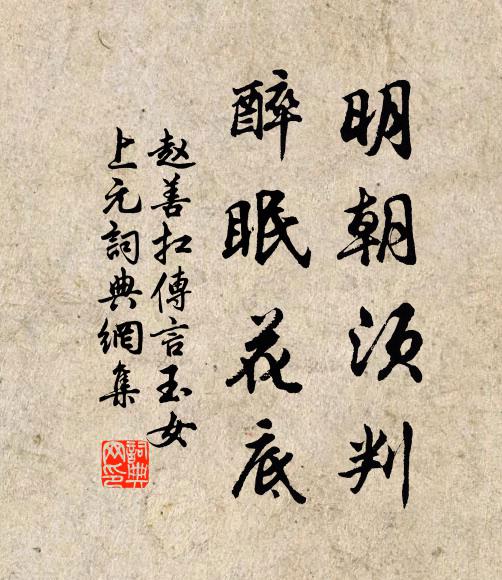 明朝须判
醉眠花底
赵善扛傳言玉女
上元詞典網集
詞典網印